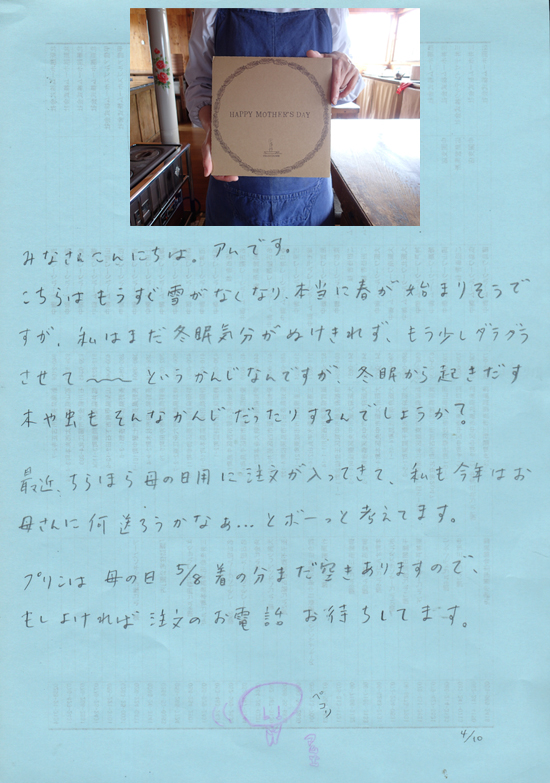 HAPPY MOTHER'S DAY
みなさんこんにちは。アムです。
こちらはもうすぐ雪がなくなり、本当に春が始まりそうで
すが、私はまだ冬眠気分がぬけきれず、もう少しダラダラ
させて〜〜〜というかんじなんですが、冬眠から起きだす
木や虫もそんなかんじだったりするんでしょうか?
最近、ちらほら母の日用に注文が入ってきて、私も今年はお
母さんに何送ろうかなぁ...とボーっと考えてます。
プリンは母の日 5/8着の分まだ空きありますので、
もしよければ注文のお電話お待ちしてます。
ペコリ
4/10